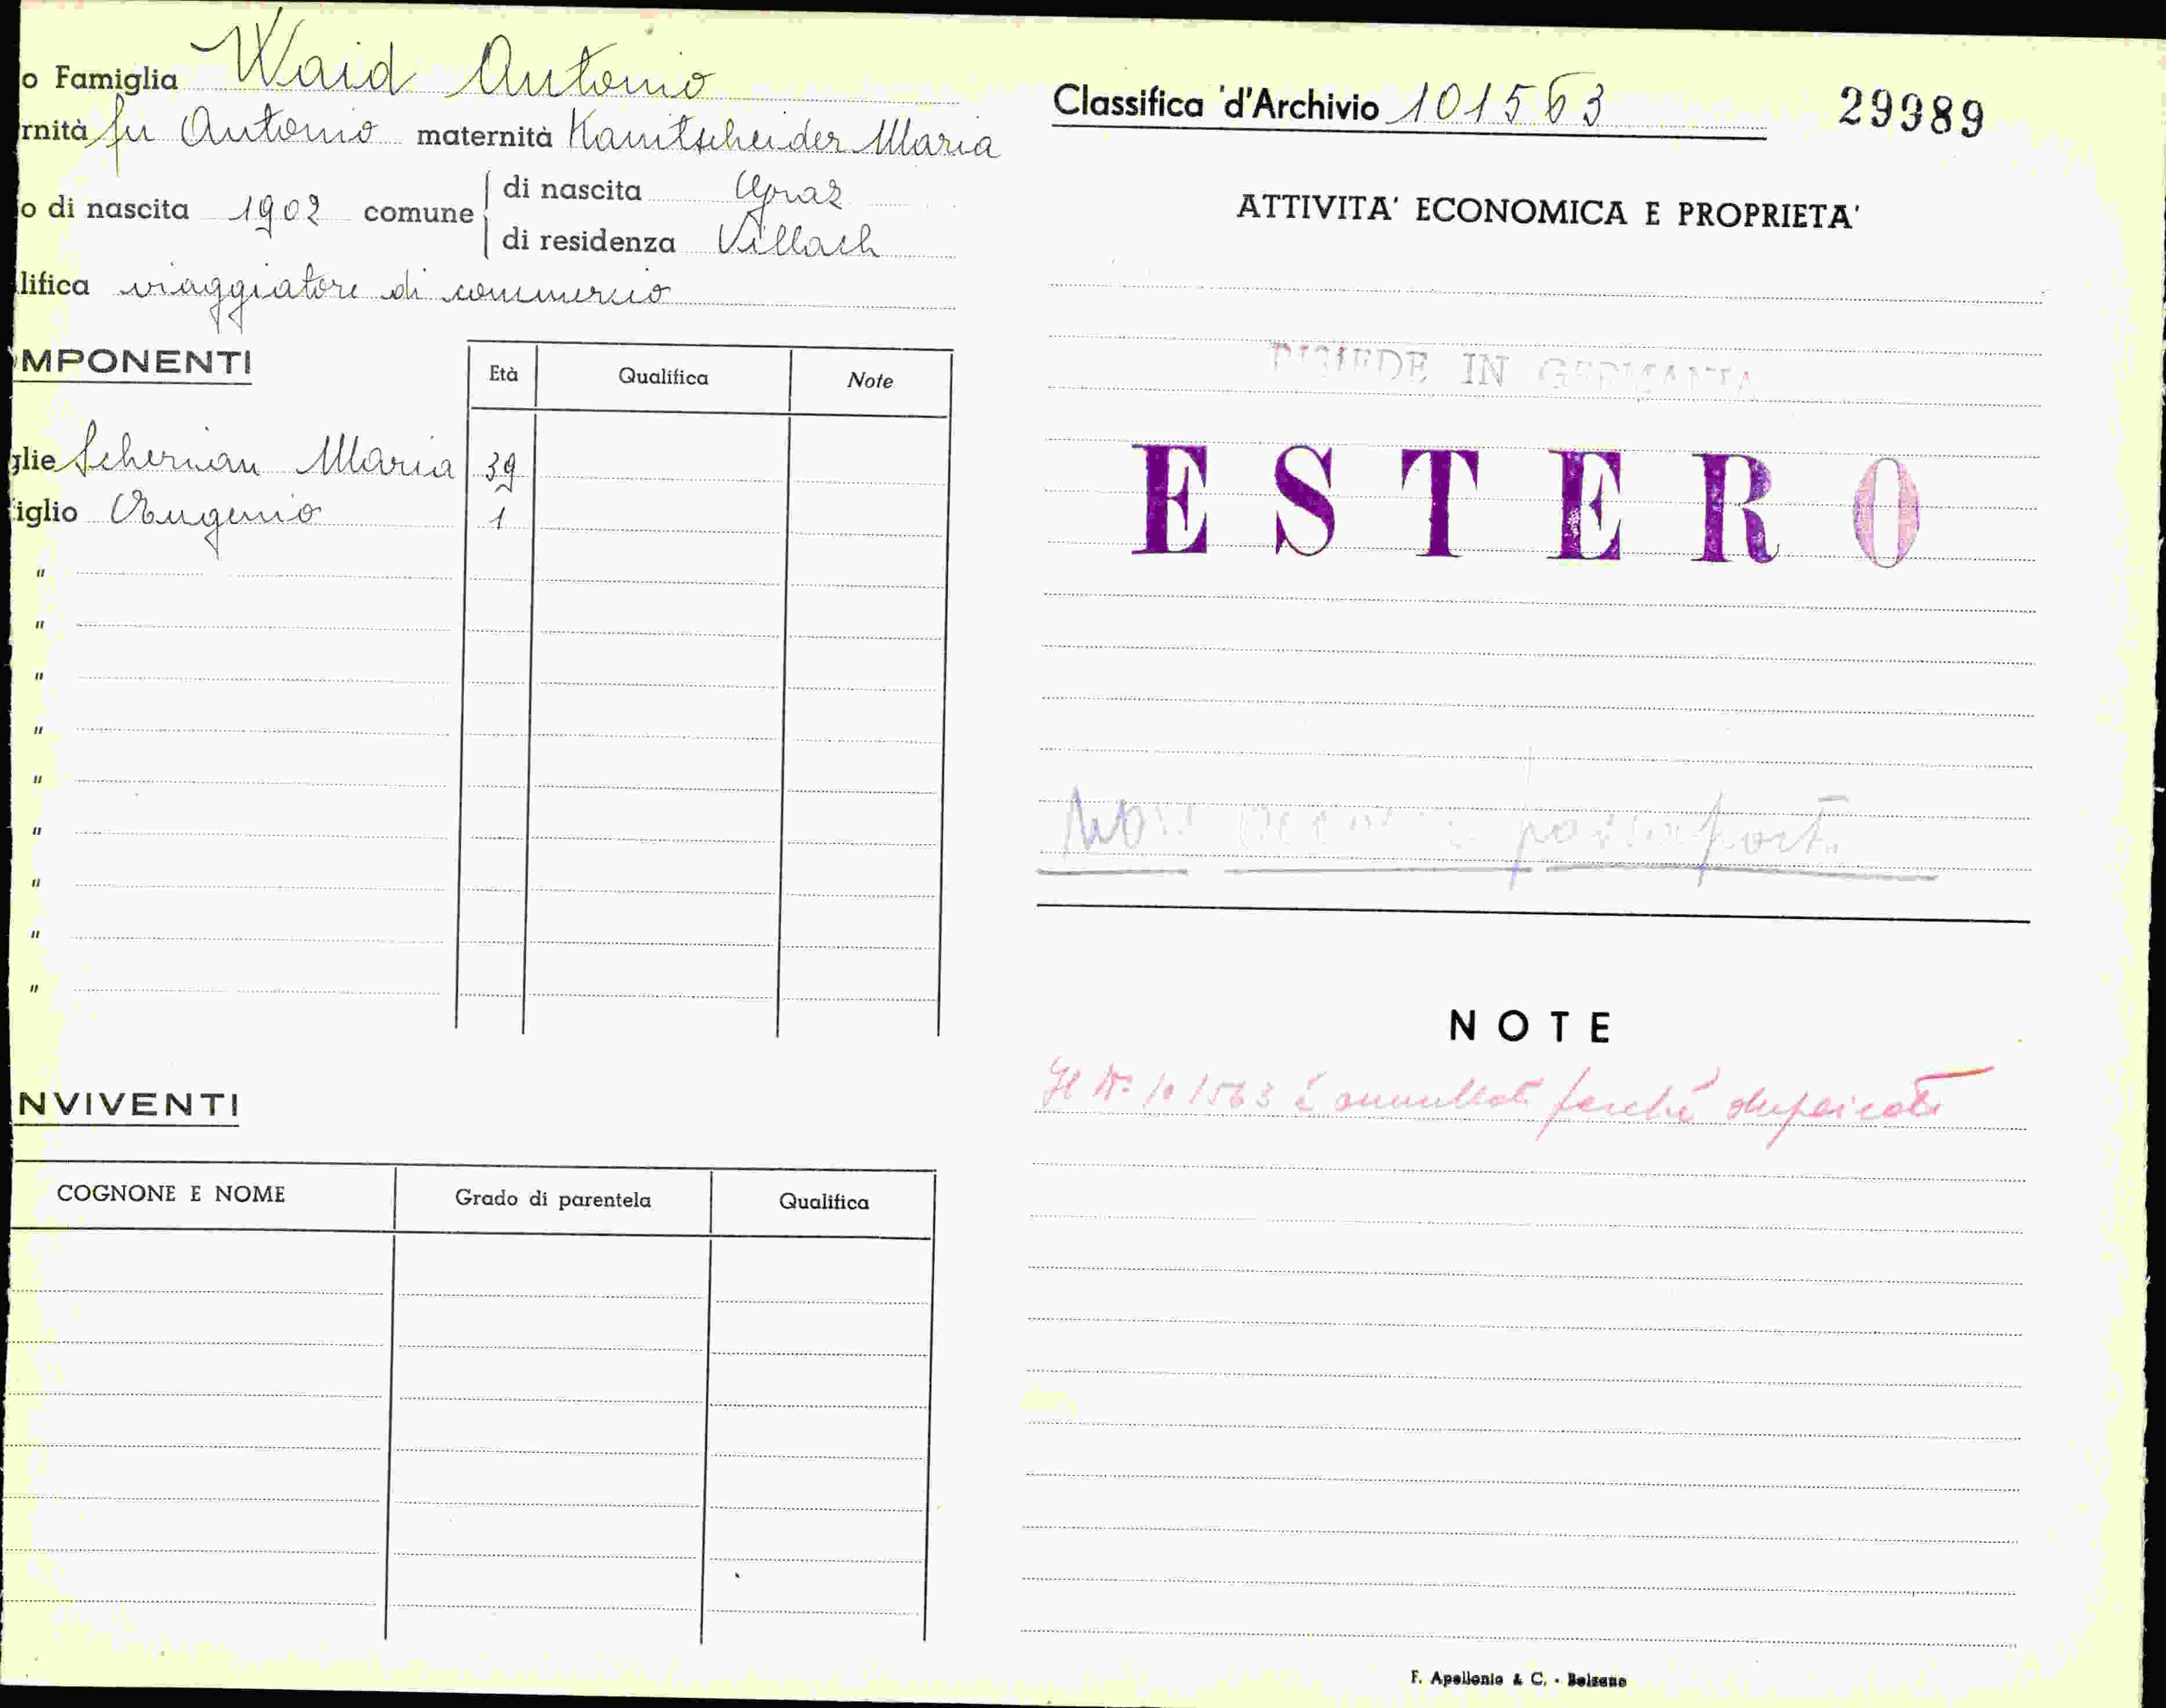 o Famiglia Waid Antonio
rnità fu Antonio maternità Kanitscheider Maria
o di nascita 1902 comune di nascita Graz
di residenza Villach
lifica viaggiatore di commercio
MPONENTI
Età Qualifica Note
glie Scherian Maria 39
iglio Eugenio 1
"
"
"
"
"
"
"
"
"
NVIVENTI
COGNONE E NOME Grado di parentela Qualifica
Classifica d'Archivio 101563 29989
ATTIVITA' ECONOMICA E PROPRIETA'
RISIEDE IN GERMANIA
ESTERO
Non
NOTE
Il N. 101563 è annullato perché duplicato
F. Apollonio & C. - Bolzano